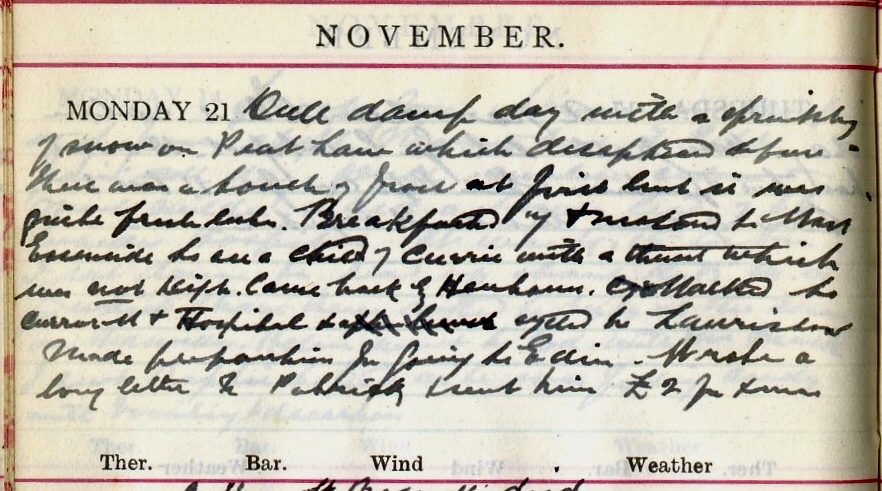 NOVEMBER.
MONDAY 21 Dull damp day with a sprinkling
of snow on Peat Law which disappeared before
there was a touch of frost at first but it was
quite fresh later. Breakfasted & motored to West
to see a child of Currie with a throat which
was not diph. Came back by Henhouse. Walked to
& Hospital & cycled to Lauriston
Made preparation for going to Edin. Wrote a
long letter to Patrick & sent him £2 for xmas
Ther. Bar. Wind Weather